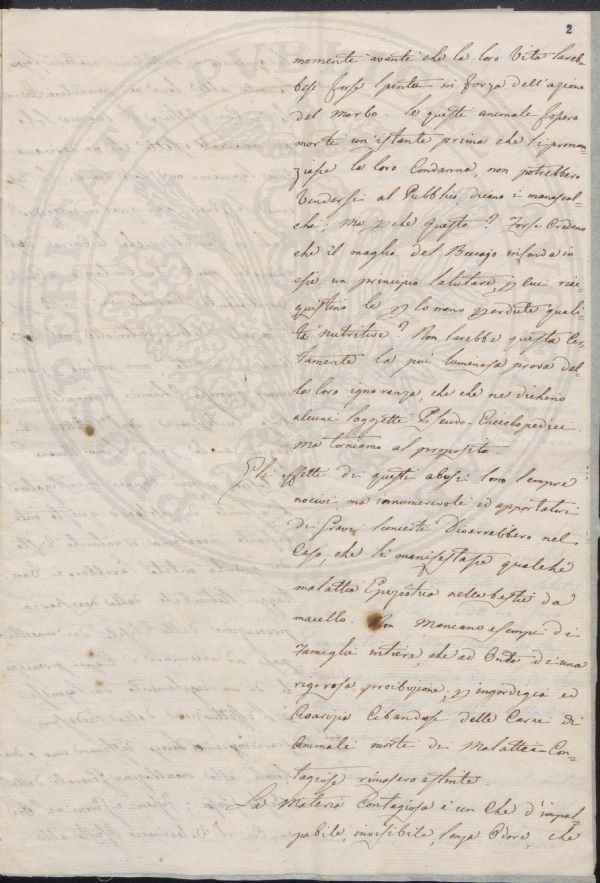 2
momenti avanti che la loro Vita sareb-
besi forse spenta in forza dell'azione
del morbo. Se questi animali fossero
morti un'istante prima che si pronun-
ziasse la loro Condanna, non potrebbero
Vendersi al Pubblico, dicano i manescal-
chi; ma pche questo? Forse Credano
che il maglio del Beccajo infonda in
essi un principio salutare, p cui riac-
quistino le p lo meno perdute quali-
tà nutritive? Non sarebbe questa cer-
tamente la più luminosa prova del-
la loro ignoranza, che che ne dichino
alcuni soggetti Pseudo-Enciclopedici.
Ma torniamo al proposito.
Gli effetti di questi abusi sono sempre
nocivi, ma innumerevoli ed apportatori
di Gravi sconcerti Diverrebbero nel
Caso, che si manifestasse qualche
malattia Epizootica nelle bestie da
macello. Non Mancano esempi di
Famiglie intiere, che ad Onta di una
rigorosa proibizione, p ingordigia ed
Avarizia Cibandosi delle Carni di
Animali morti di Malattia Con-
tagiosa rimasero estinte.
La Materia Contagiosa è un Che d'impal-
pabile, invisibile, senza Odore, che